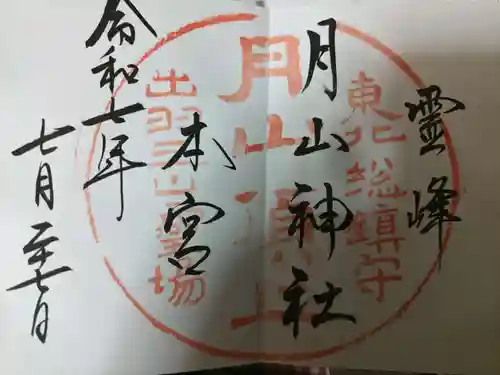 霊峰
月山神社
本宮
令和七年
七月二十七日
東北総鎮守
月山頂上
出羽三山霊場